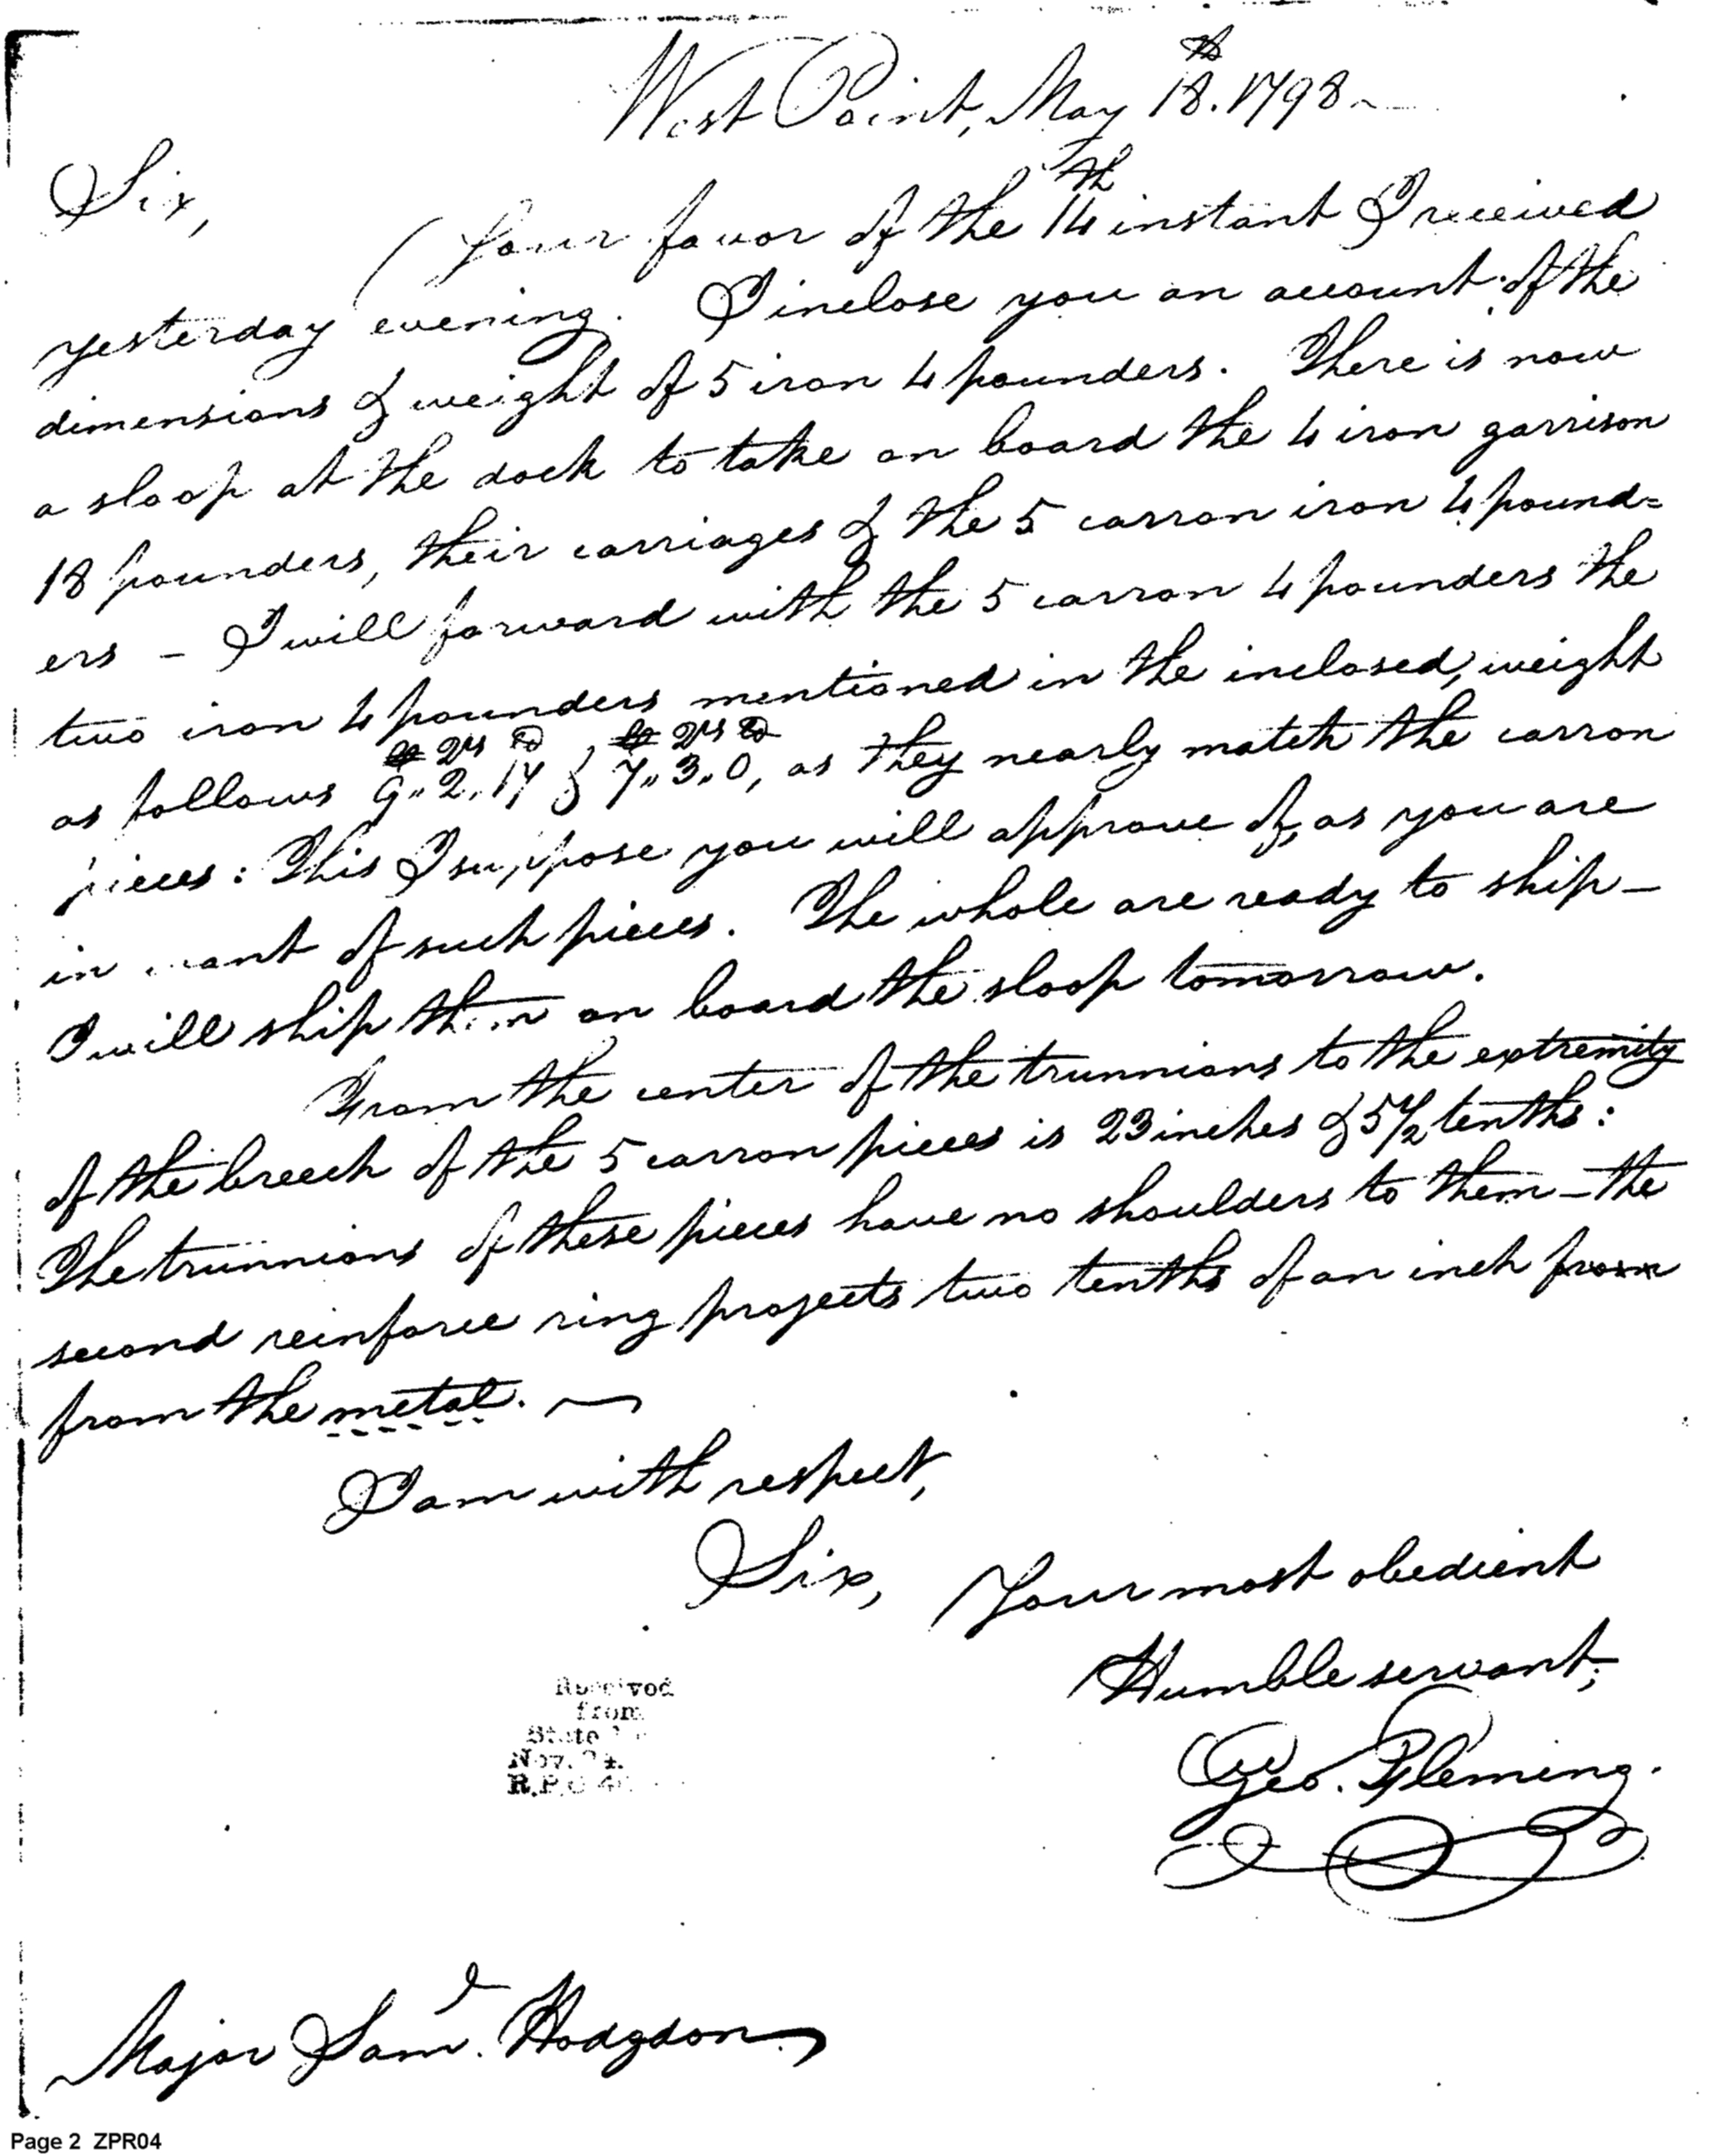 West Point, May 18th. 1798
Sir,
Your favor of the 14th instant I received
yesterday evening. I inclose you an account of the
dimensions & weight of 5 iron 4 pounders. There is now
a sloop at the dock to take on board the 4 iron garrison
18 pounders, their carriages & the 5 carron iron 4 pound=
ers – I will forward with the 5 carron 4 pounders the
two iron 4 pounders mentioned in the inclosed, weight
as follows 9„ 2„ 17 & 7„ 3„ 0, as they nearly match the carron
pieces: This I suppose you will approve of, as you are
in want of such pieces. The whole are ready to ship –
I will ship them on board the sloop tomorrow.
From the center of the trunnions to the extremity
of the breech of the 5 carron pieces is 23 inches & 5 1/2 tenths:
The trunnions of these pieces have no shoulders to them – the
second reinforce ring projects two tenths of an inch from
from the metal.
I am with respect,
Sir, Your most obedient
Humble servant,
Geo. Fleming.
Received
from
State
Nov. 24.
R.P.
Major Saml. Hodgdon
Page 2 ZPR04